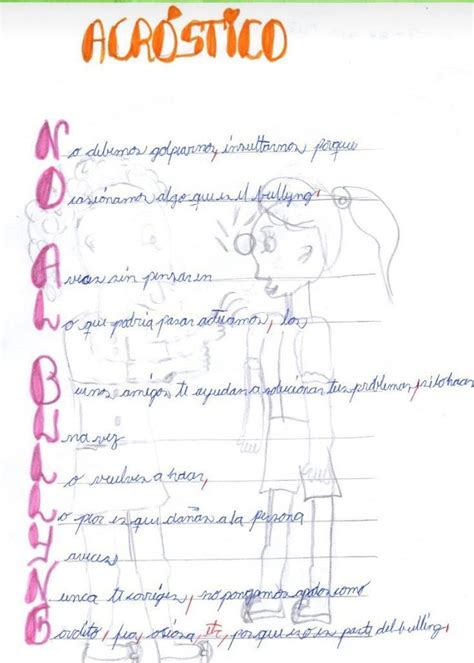 ACRÓSTICO
No debemos golpiarnos, insultarnos porque
Ocasionamos algo que es el bullying,
A veces sin pensar en
Lo que podria pasar actuamos, los
Buenos amigos te ayudan a solucionar tus problemas, si lo haces
Una vez
Lo vuelves a hacer,
Lo pior es que dañas a la persona
Y aveces
Nunca te corriges, no pongamos apodos como
Gordito, fea, osiosa, etc, porque eso es parte del bulling,